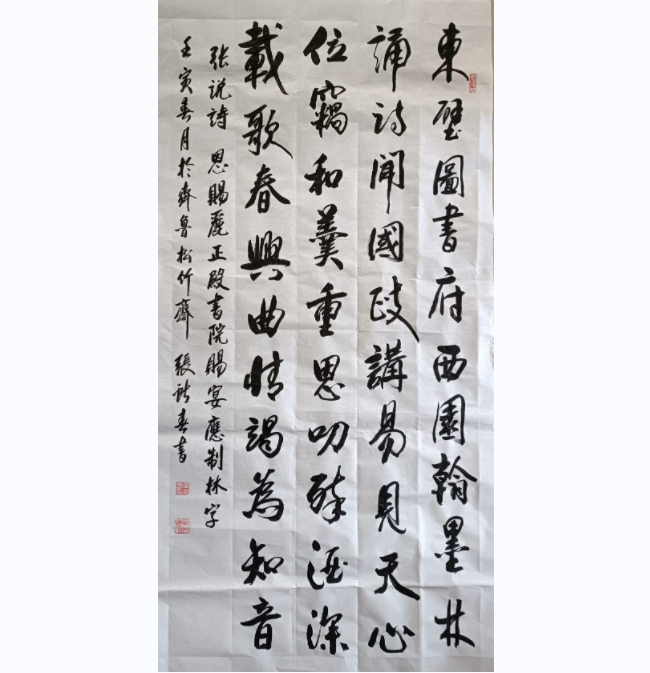 東壁圖書府西園翰墨林
誦诗聞國政講易見天心
位竊和羹重恩叨醉酒深
載歌春興曲情竭為知音
张说詩 恩賜麗正殿書院賜宴應制林字
壬寅春月於齊魯松竹齋 張春書